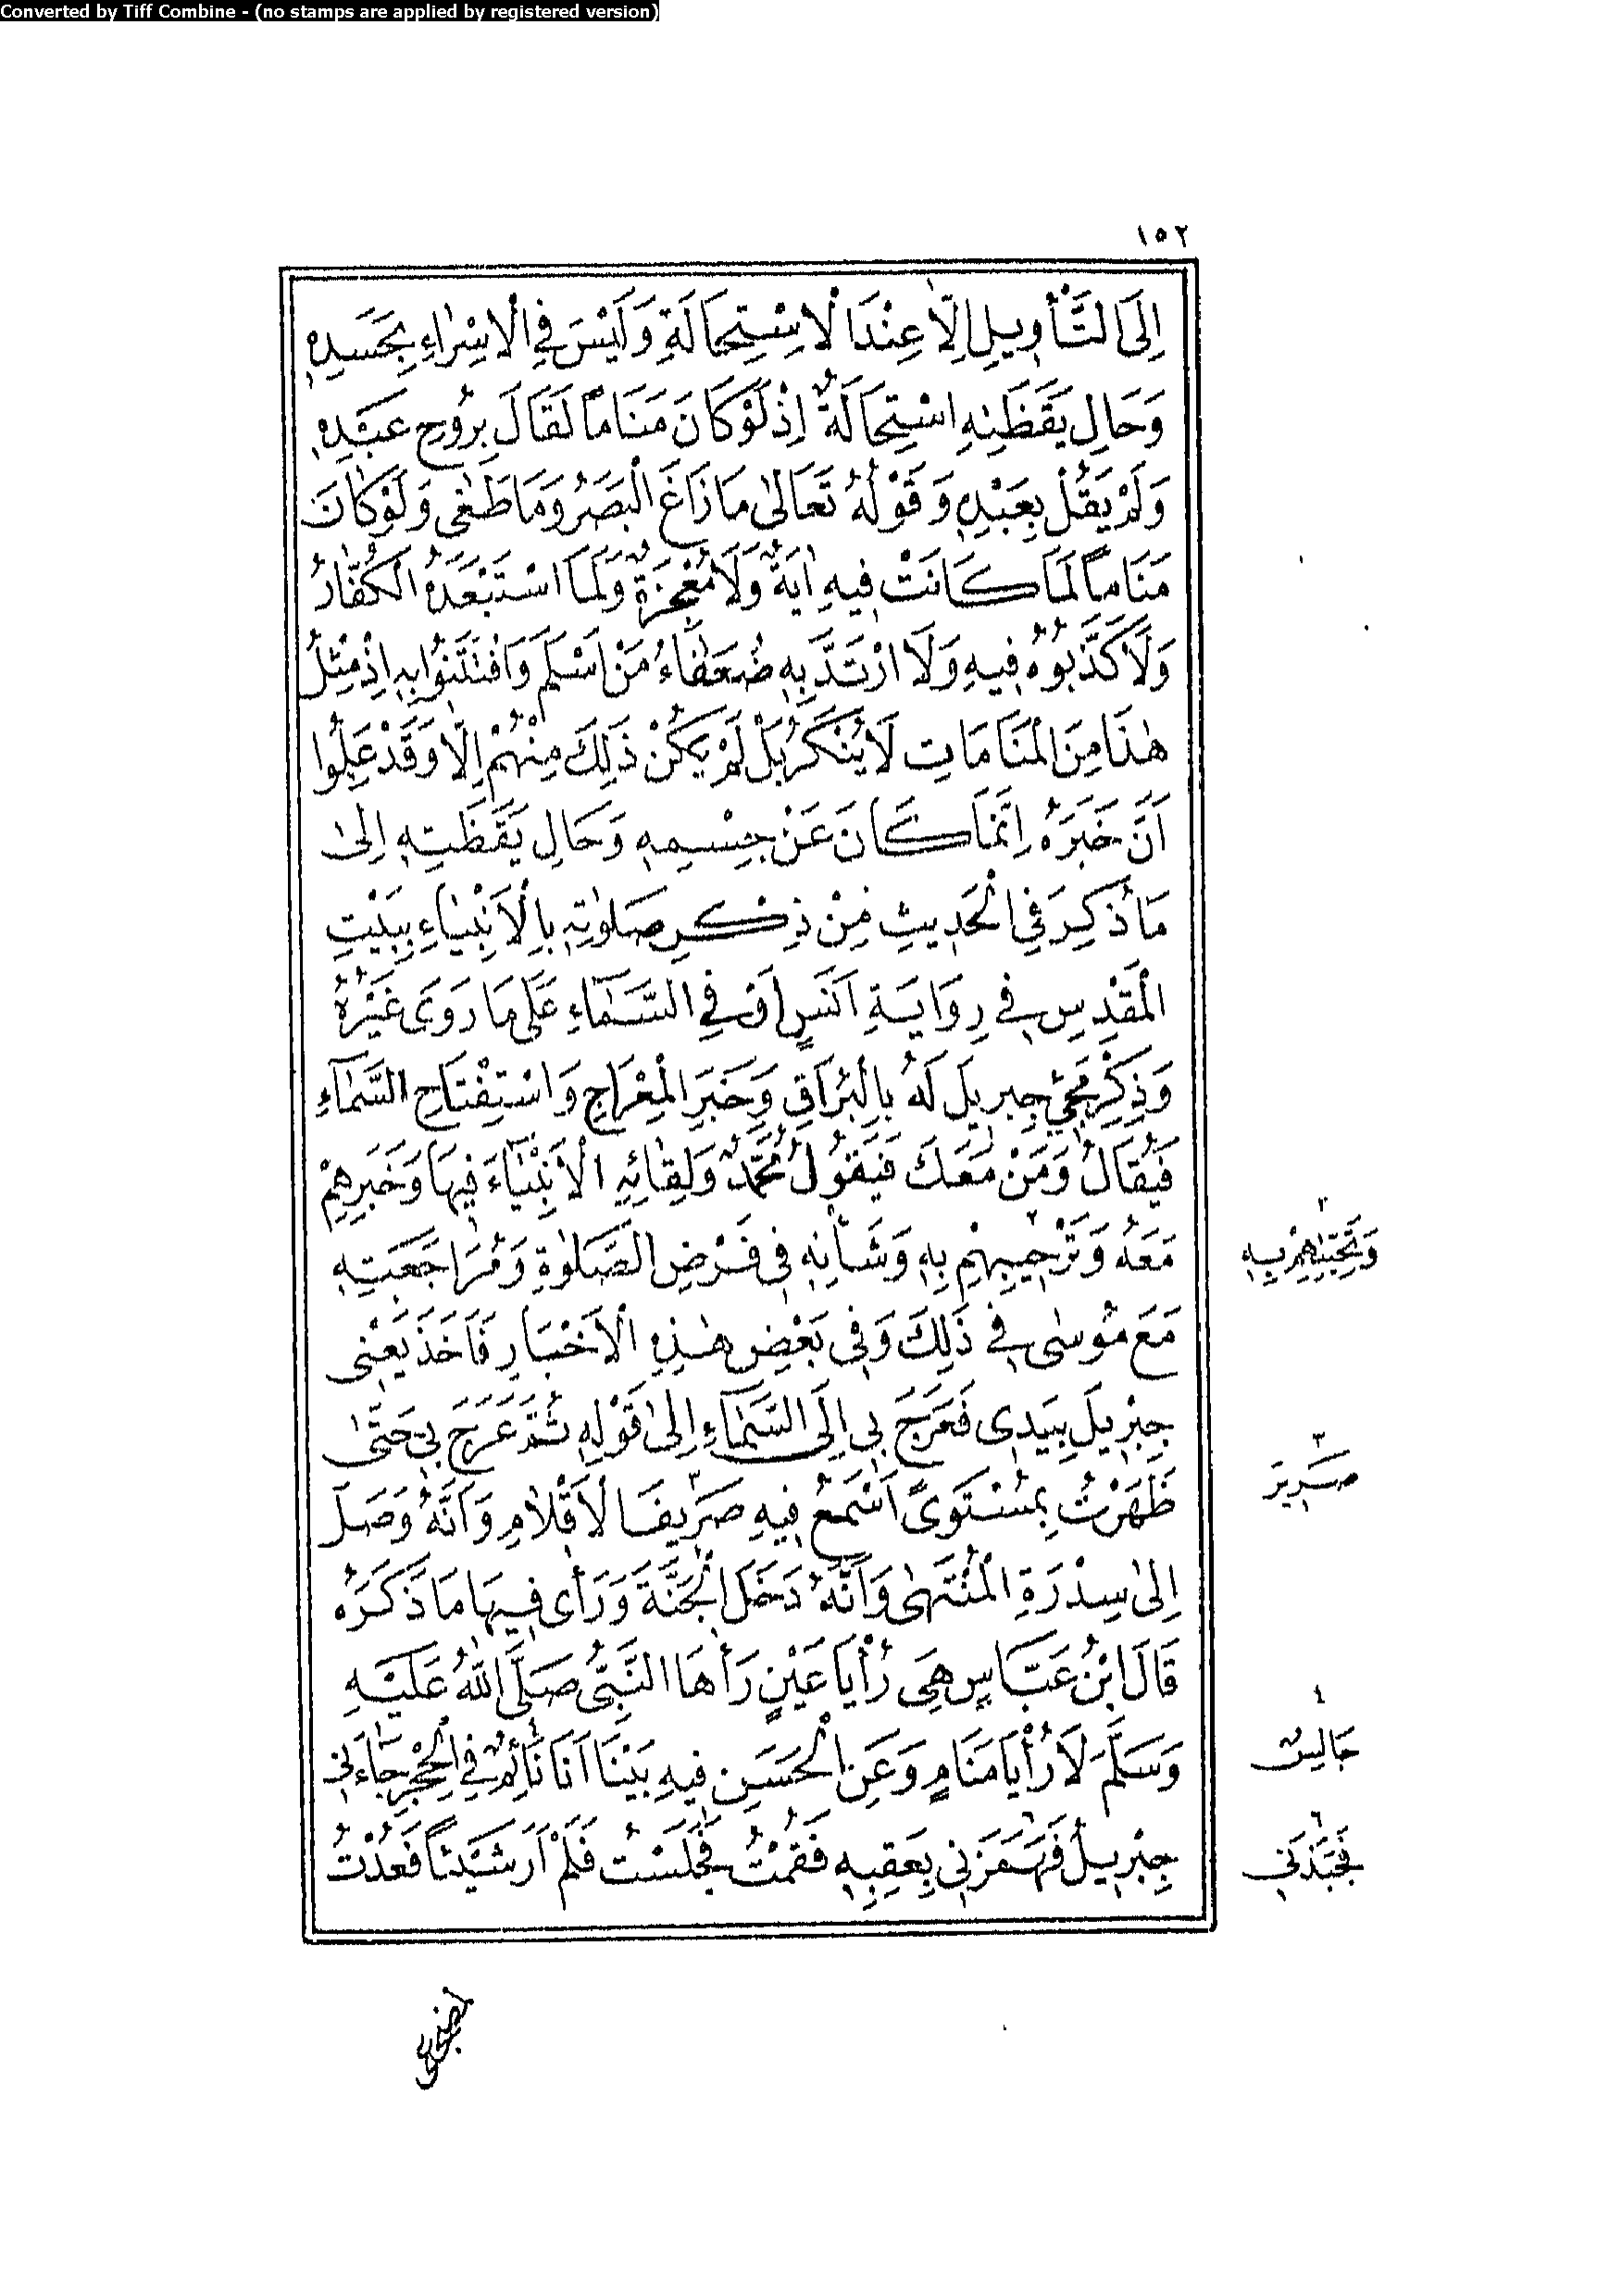 Converted by Tiff Combine - (no stamps are applied by registered version)
١٥٢
اِلَى التَّأْوِيلِ اِلَّا عِنْدَ الْاِسْتِحَالَةِ وَلَيْسَ فِي الْاِسْرَاءِ بِجَسَدِهِ
وَحَالِ يَقَظَتِهِ اسْتِحَالَةٌ اِذْ لَوْ كَانَ مَنَامًا لَقَالَ بِرُوحِ عَبْدِهِ
وَلَمْ يَقُلْ بِعَبْدِهِ وَقَوْلُهُ تَعَالٰى مَا زَاغَ الْبَصَرُ وَمَا طَغٰى وَلَوْ كَانَ
مَنَامًا لَمَا كَانَتْ فِيهِ اٰيَةٌ وَلَا مُعْجِزَةٌ وَلَمَا اسْتَبْعَدَهُ الْكُفَّارُ
وَلَا كَذَّبُوهُ فِيهِ وَلَا ارْتَدَّ بِهِ ضُعَفَاءُ مَنْ اَسْلَمَ وَافْتَتَنُوا بِهِ اِذْ مِثْلُ
هٰذَا مِنَ الْمَنَامَاتِ لَا يُنْكَرُ بَلْ لَمْ يَكُنْ ذٰلِكَ مِنْهُمْ اِلَّا وَقَدْ عَلِمُوا
اَنَّ خَبَرَهُ اِنَّمَا كَانَ عَنْ جِسْمِهِ وَحَالِ يَقَظَتِهِ اِلٰى
مَا ذُكِرَ فِي الْحَدِيثِ مِنْ ذِكْرِ صَلٰوتِهِ بِالْاَنْبِيَاءِ بِبَيْتِ
الْمَقْدِسِ فِي رِوَايَةِ اَنَسٍ اَوْ فِي السَّمَاءِ عَلَى مَا رَوَى غَيْرُهُ
وَذِكْرِ مَجِيْءِ جِبْرِيلَ لَهُ بِالْبُرَاقِ وَخَبَرِ الْمِعْرَاجِ وَاسْتِفْتَاحِ السَّمَاءِ
فَيُقَالُ وَمَنْ مَعَكَ فَيَقُولُ مُحَمَّدٌ وَلِقَائِهِ الْاَنْبِيَاءَ فِيهَا وَخَبَرِهِمْ
مَعَهُ وَتَرْحِيبِهِمْ بِهِ وَشَأْنِهِ فِي فَرْضِ الصَّلٰوةِ وَمُرَاجَعَتِهِ
وَتَحِيَّتِهِمْ بِهِ ٢
مَعَ مُوسٰى فِي ذٰلِكَ وَفِي بَعْضِ هٰذِهِ الْاَخْبَارِ فَاَخَذَ يَعْنِى
جِبْرِيلُ بِيَدِى فَعَرَجَ بِي اِلَى السَّمَاءِ اِلٰى قَوْلِهِ ثُمَّ عَرَجَ بِي حَتّٰى
صَرِيرَ ٣
ظَهَرْتُ بِمُسْتَوًى اَسْمَعُ فِيهِ صَرِيفَ الْاَقْلَامِ وَاَنَّهُ وَصَلَ
اِلٰى سِدْرَةِ الْمُنْتَهٰى وَاَنَّهُ دَخَلَ الْجَنَّةَ وَرَأٰى فِيهَا مَا ذَكَرَهُ
قَالَ ابْنُ عَبَّاسٍ هِيَ رُؤْيَا عَيْنٍ رَاٰهَا النَّبِيُّ صَلَّى اللّٰهُ عَلَيْهِ
وَسَلَّمَ لَا رُؤْيَا مَنَامٍ وَعَنِ الْحَسَنِ فِيهِ بَيْنَا اَنَا نَائِمٌ فِي الْحِجْرِ جَاءَنِي
جَالِسٌ ٤
جِبْرِيلُ فَهَمَزَنِي بِعَقِبِهِ فَقُمْتُ فَجَلَسْتُ فَلَمْ اَرَ شَيْئًا فَعُدْتُ
فَجَبَذَنِي ٦
لمضجعى